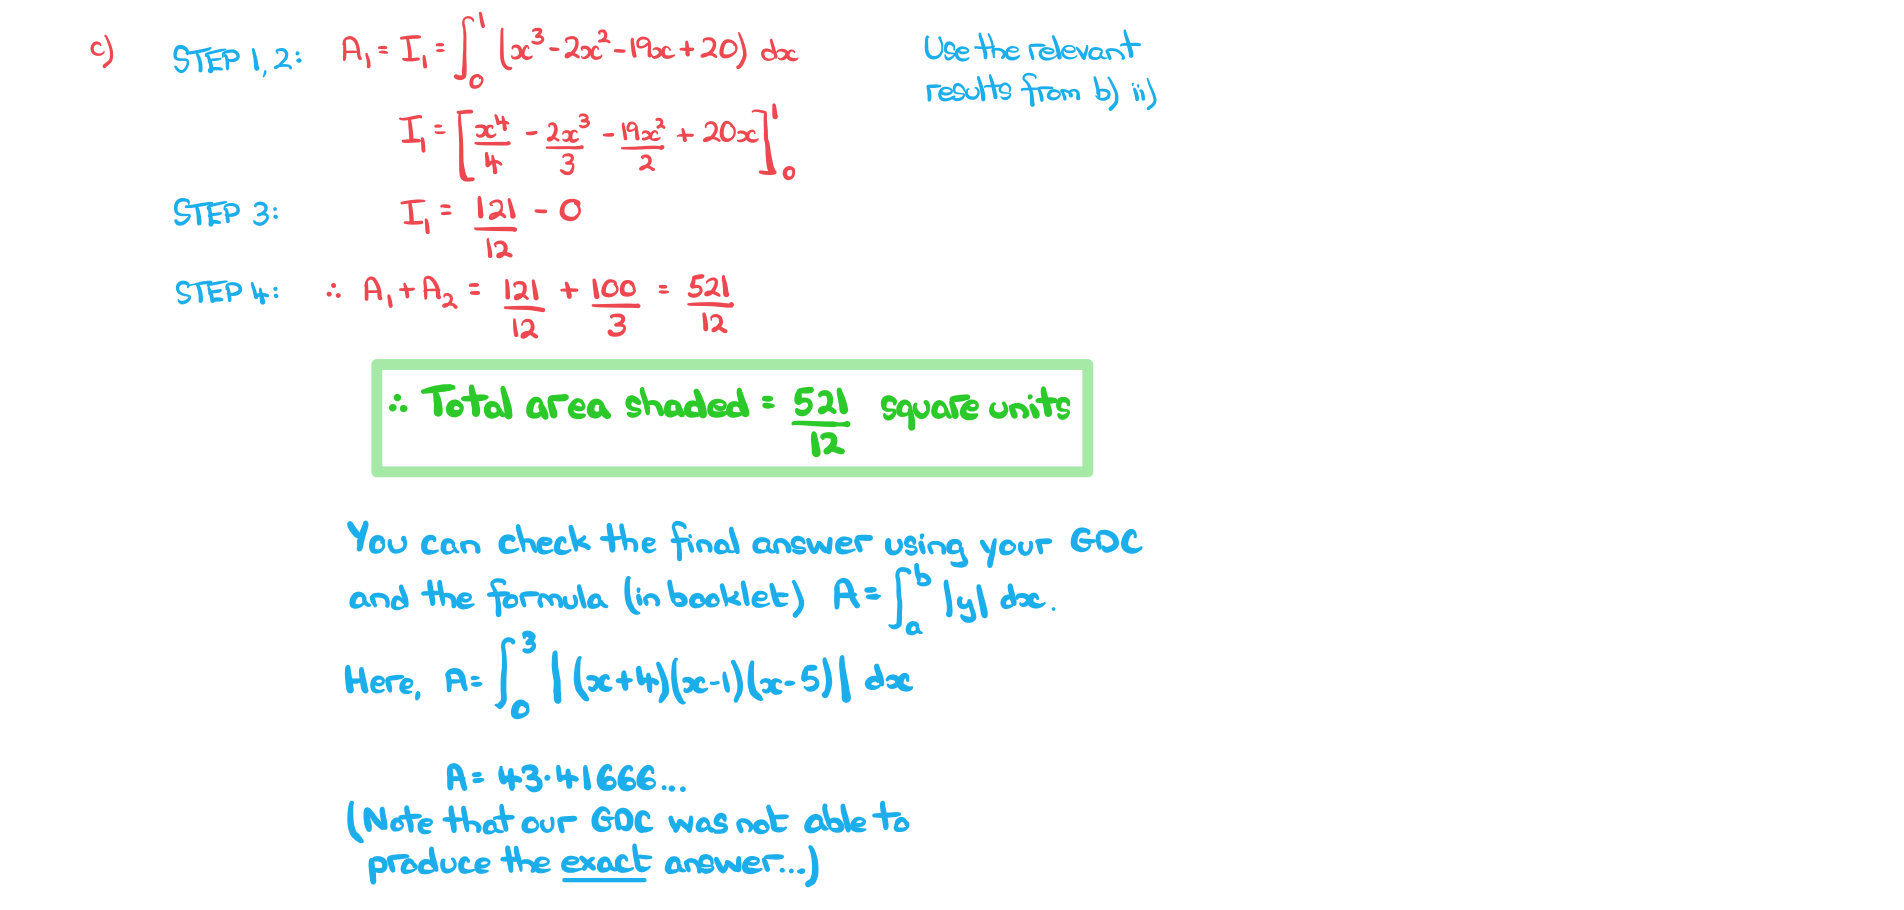 c) STEP 1,2: A₁ = I₁ = ∫₀¹ (x³ - 2x² - 19x + 20) dx Use the relevant
results from b) ii)
I₁ = [x⁴/4 - 2x³/3 - 19x²/2 + 20x]₀¹
STEP 3: I₁ = 121/12 - 0
STEP 4: ∴ A₁ + A₂ = 121/12 + 100/3 = 521/12
∴ Total area shaded = 521/12 square units
You can check the final answer using your GDC
and the formula (in booklet) A = ∫ₐᵇ |y| dx.
Here, A = ∫₀³ |(x+4)(x-1)(x-5)| dx
A = 43·41666...
(Note that our GDC was not able to
produce the exact answer...)